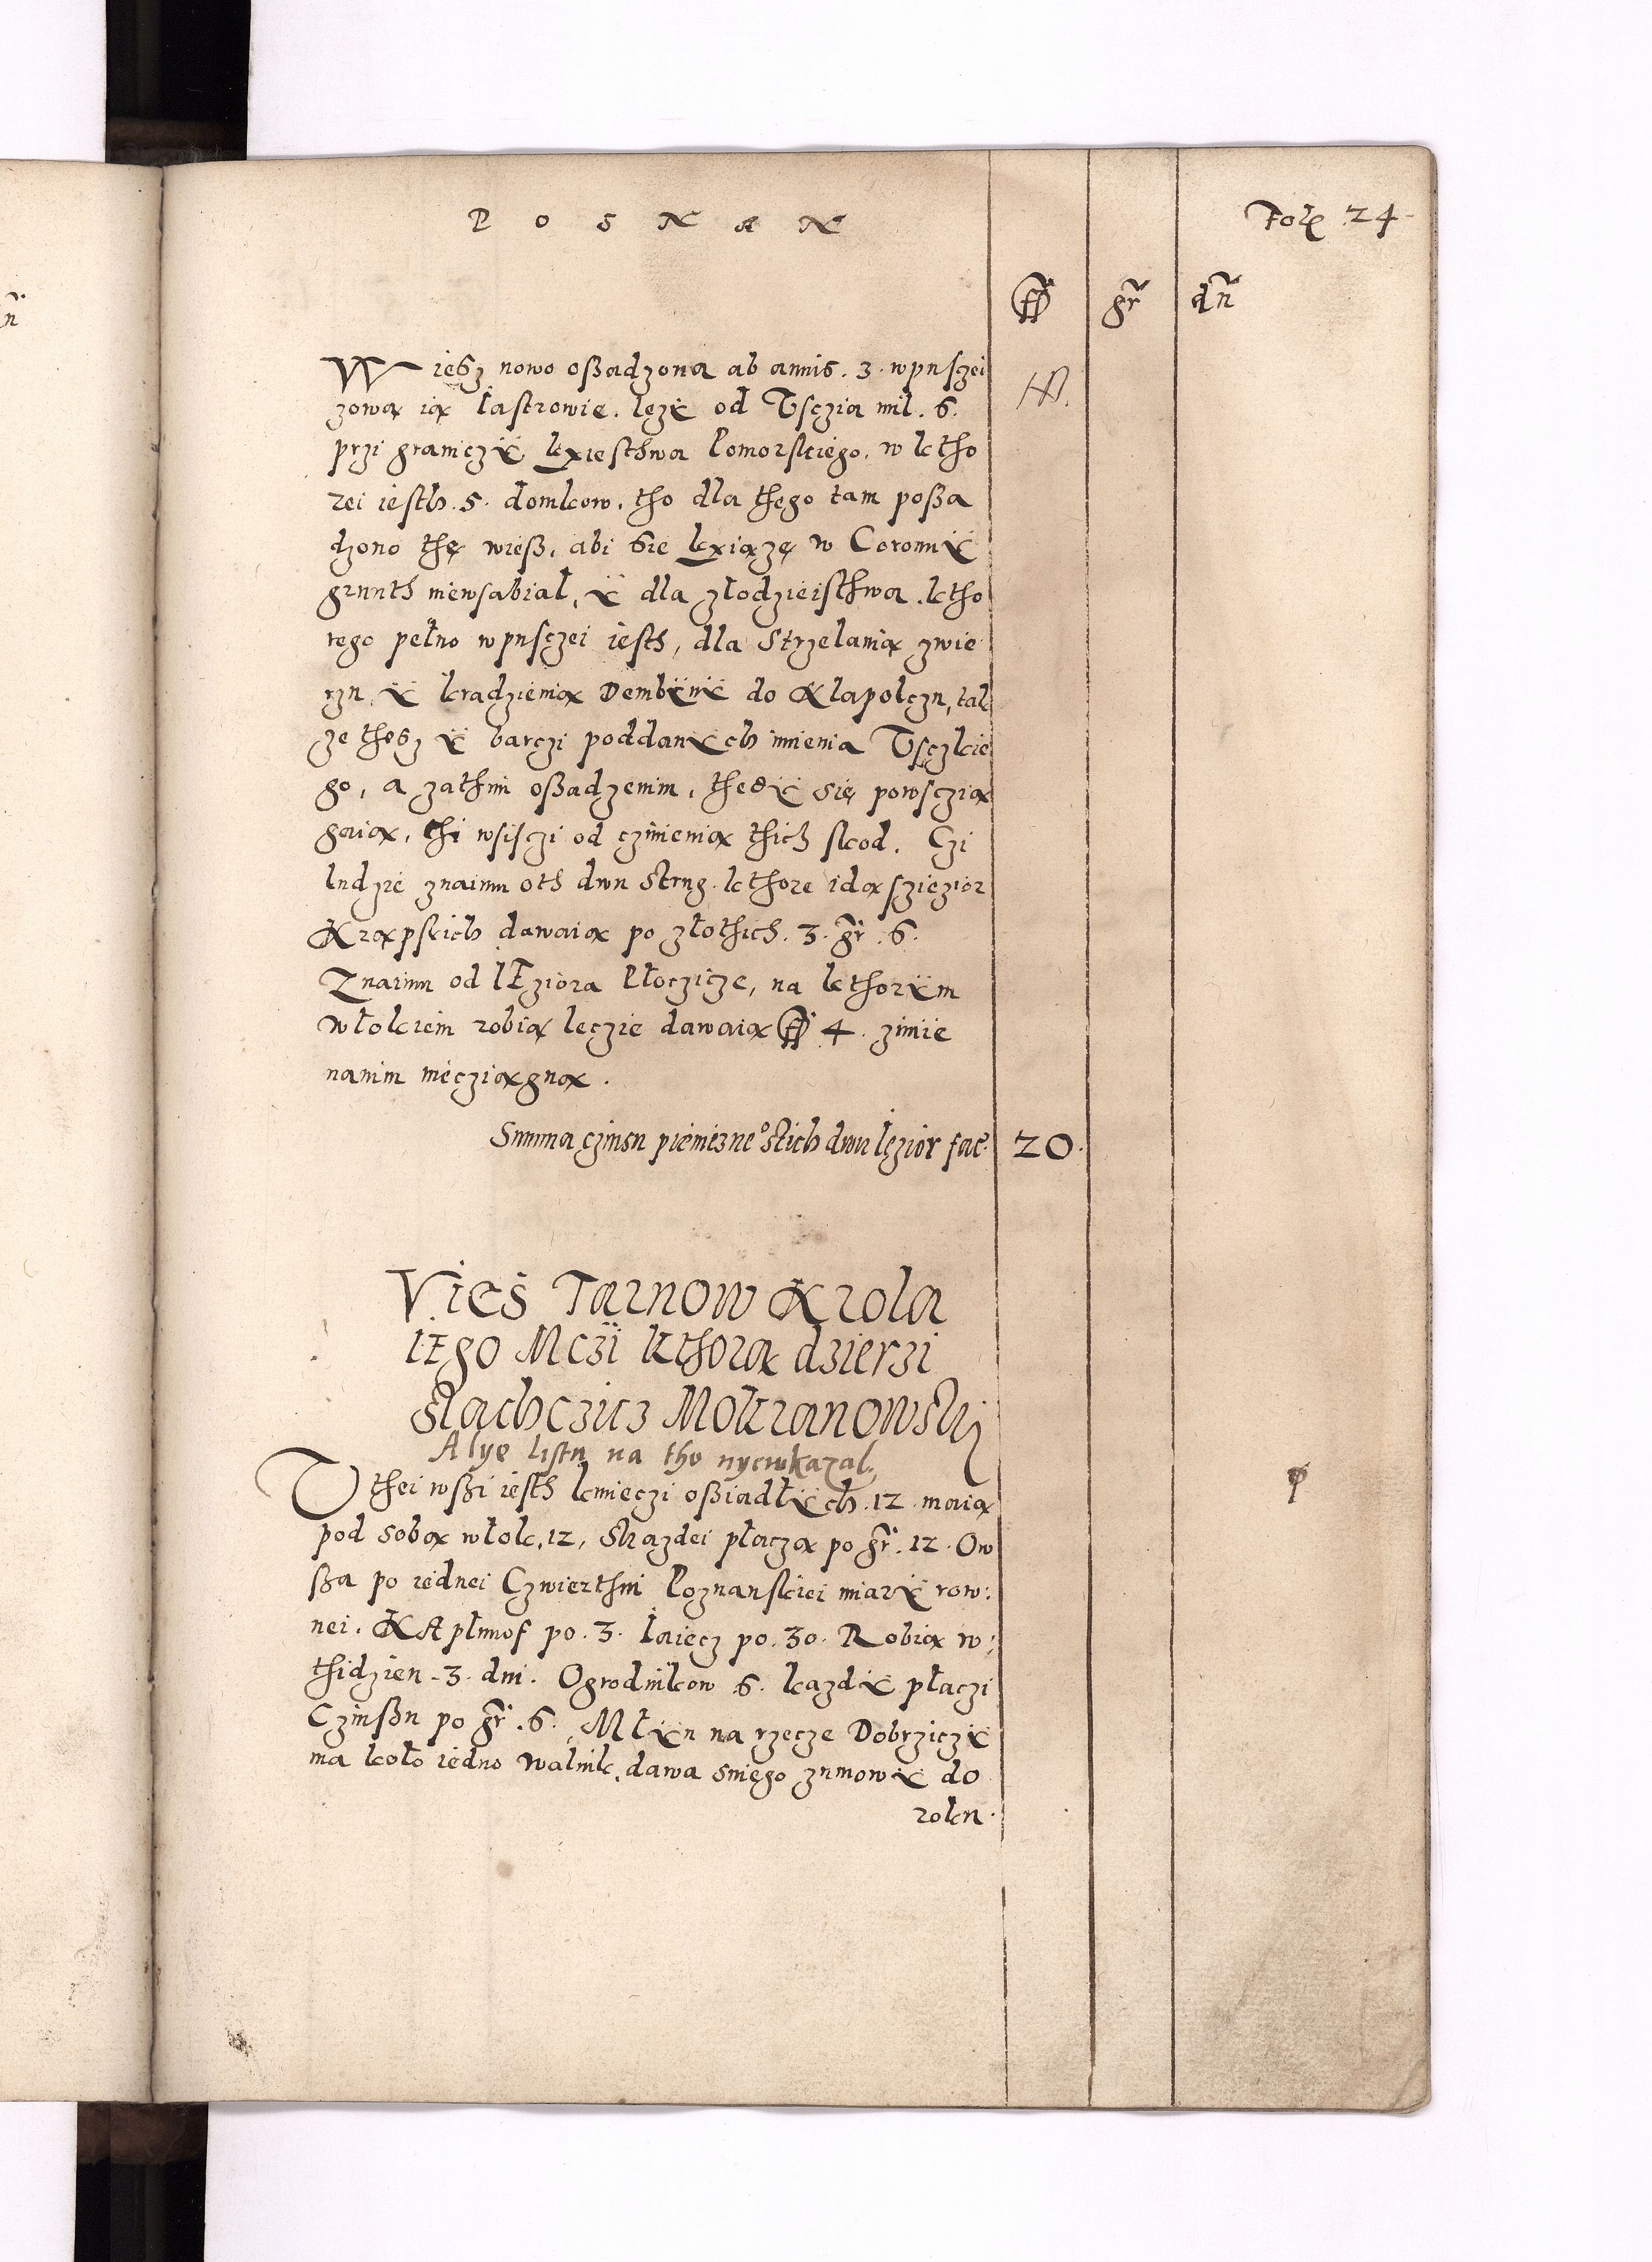 POSNAN
Fol. 24
fl gr dn
Wiesz nowo oßadzona ab annis . 3 . w pusczei
zową ią Iastrowie . leży od Vsczia mil . 6.
przi graniczÿ kxiesthwa Pomorskiego, w ktho
rei iesth . 5 . domkow . tho dla thego tam poßa
dzono thę wieß, abi sie kxiążę w Coronnÿ
grunth niewsabiał, ÿ dla złodzieisthwa . ktho
rego pełno w pusczei iesth, dla Strzelania zwie
rzu, ÿ kradzienia Dembinÿ do Klapolczu, tak
że thesz ÿ barczi poddanÿch imienia Vsczkie
go, a zathim oßadzenim, thedÿ się powsczią
gaią, thi wsisczi od czinienia thich skod. Czi
ludzie znaimu oth dwu Strug . kthore idą sziezior
Krąpskich dawaią po złothich . 3 . gr . 6.
Znaimu od IEziora Płoczicze, na kthorÿm
włokiem robią leczie dawaią fl 4 . zimie
nanim niecziągną .
Summa czinsu pieniżne° stich dwu Ięzior fac. 20.
Vieś Tarnow Krola
IEgo Mczi kthorą dzierzi
Slachczicz Mokranowski
Alye listu na tho nyeukazal.
V thei wßi iesth kmieczi oßiadłÿch . 12 maią
pod sobą włok . 12, Skazdei płaczą po gr . 12 . Ow
ßa po iednei Czwierthni Poznanskiei miarÿ row:
nei . KApłunof po . 3 . Iaiecz po . 30 . Robią w:
thidzien - 3 . dni . Ogrodnikow 6 . kazdÿ płaczi
Czinßu po gr . 6 . Młÿn na rzecze Dobrziczÿ
ma koło iedno walnik, dawa sniego zumowÿ do
roku.